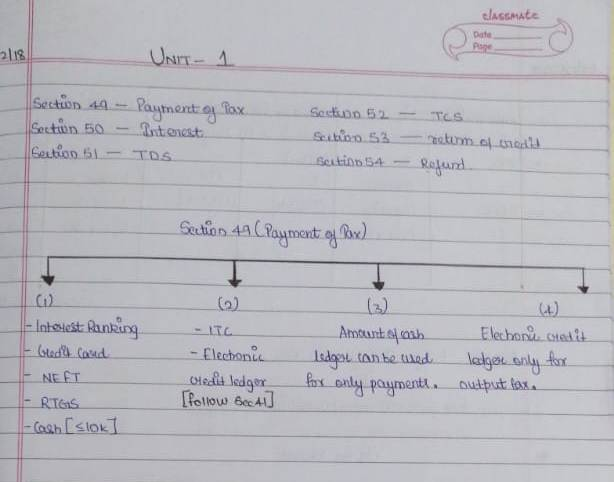 classmate
Date
Page
2/18
UNIT - 1
Section 49 - Payment of Tax
Section 50 - Interest
Section 51 - TDS
Section 52 - TCS
Section 53 - return of credit
Section 54 - Refund
Section 49 (Payment of Tax)
(1)
- Interest Banking
- Credit Card
- NEFT
- RTGS
- Cash [≤10K]
(2)
- ITC
- Electronic
credit ledger
[follow Sec 41]
(3)
Amount of cash
ledger can be used
for only payment.
(4)
Electronic credit
ledger only for
output tax.